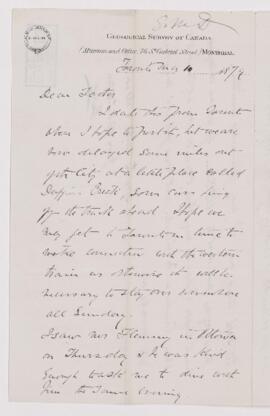 G.M.D
GEOLOGICAL SURVEY OF CANADA
(Museum and Office, 76 St. Gabriel Street) MONTREAL
Toronto May 10 1879
Dear Father
I date this from Toronto
where I hope to post it, but we are
now delayed some miles out
of the city at a little place called
Duffins Creek, some cars being
off the track ahead. I hope we
may get to Toronto in time to
make connection with the western
train as otherwise it will be
necessary to stay over somewhere
all Sunday.
I saw Mr Fleming in Ottawa
on Thursday & he was kind
enough to ask me to dine with
him the same evening